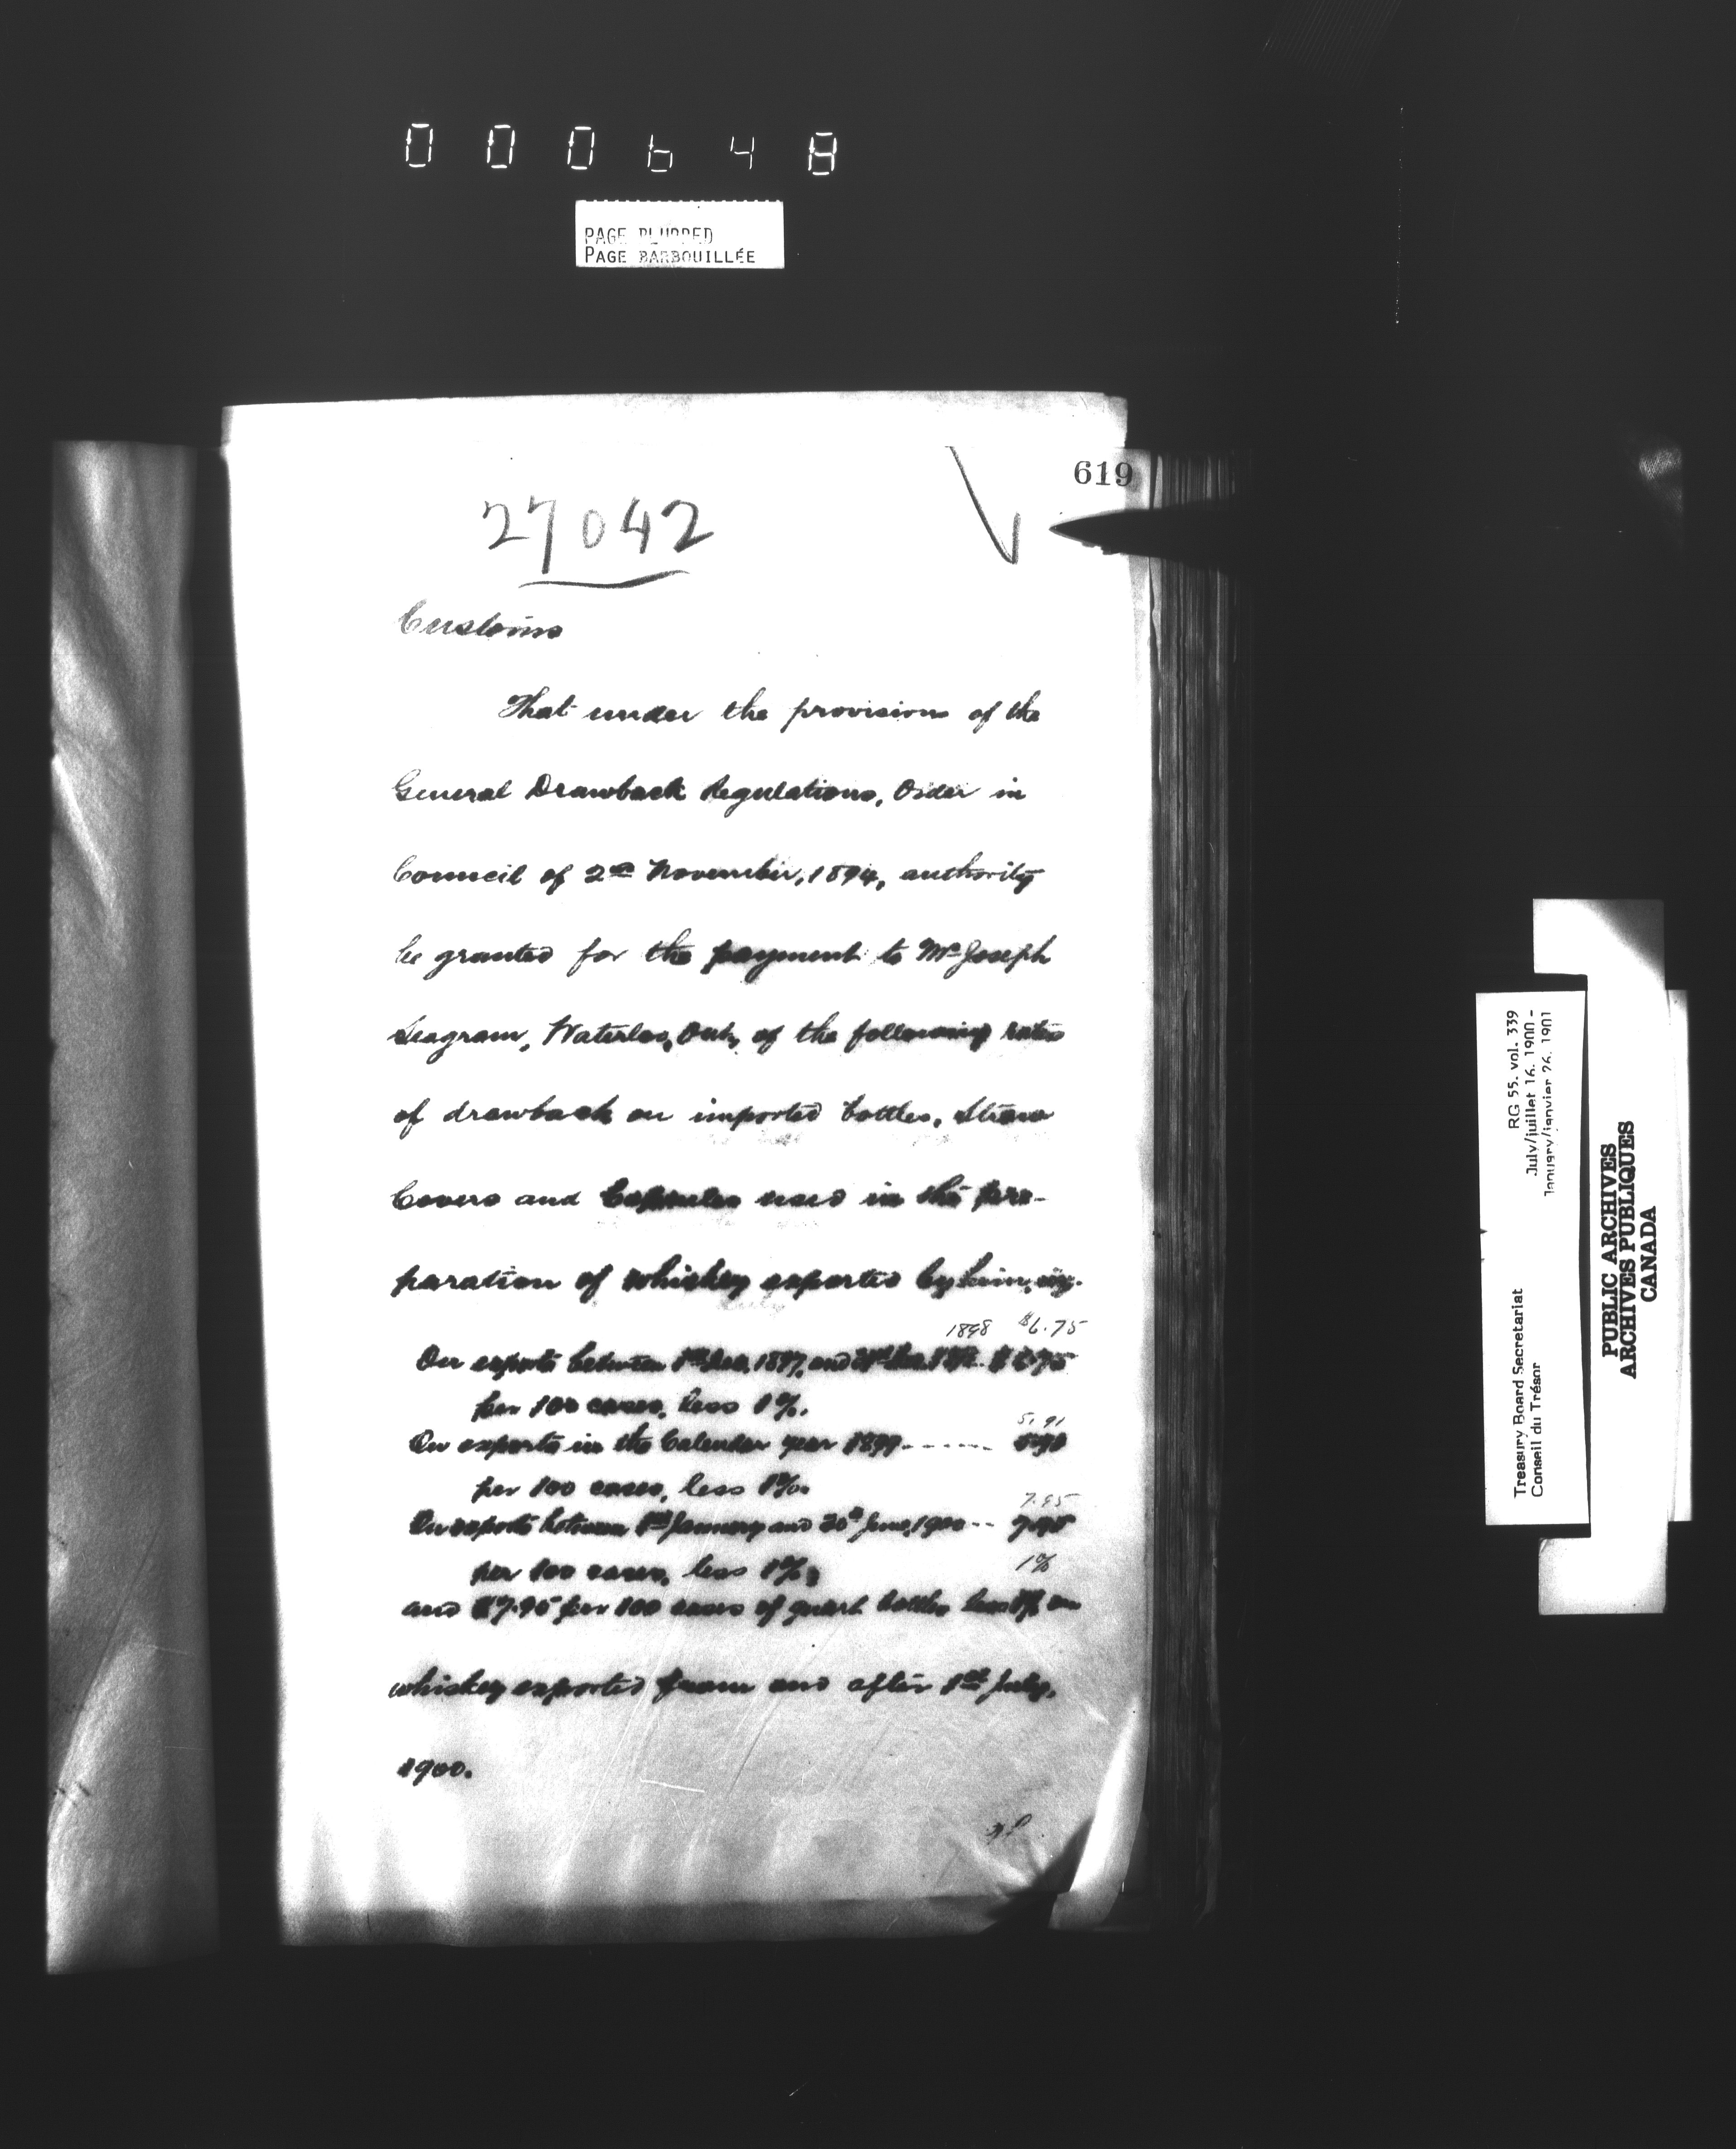 000648
PAGE BLURRED
PAGE BARBOUILLÉE
619
27042
Customs
That under the provisions of the
General Drawback Regulations, Order in
Council of 2nd November, 1894, authority
be granted for the payment to Mr Joseph
Seagram, Waterloo, Ont, of the following rates
of drawback on imported bottles, straw
Covers and Capsules used in the pre-
paration of whiskey exported by him, viz.
1898 $6.75
On exports between 1st Dec, 1897, and 31st Dec 1898 $6.75
per 100 cases, less 1%.
5.91
On exports in the Calendar year 1899 ------- 5.91
per 100 cases, less 1%.
7.95
On exports between 1st January and 30th June, 1900 -- 7.95
1%
per 100 cases, less 1%;
and $7.95 per 100 cases of quart bottles less 1% on
whiskey exported from and after 1st July,
1900.
RG 55, vol. 339
July/juillet 16, 1900 -
January/janvier 26, 1901
Treasury Board Secretariat
Conseil du Trésor
PUBLIC ARCHIVES
ARCHIVES PUBLIQUES
CANADA